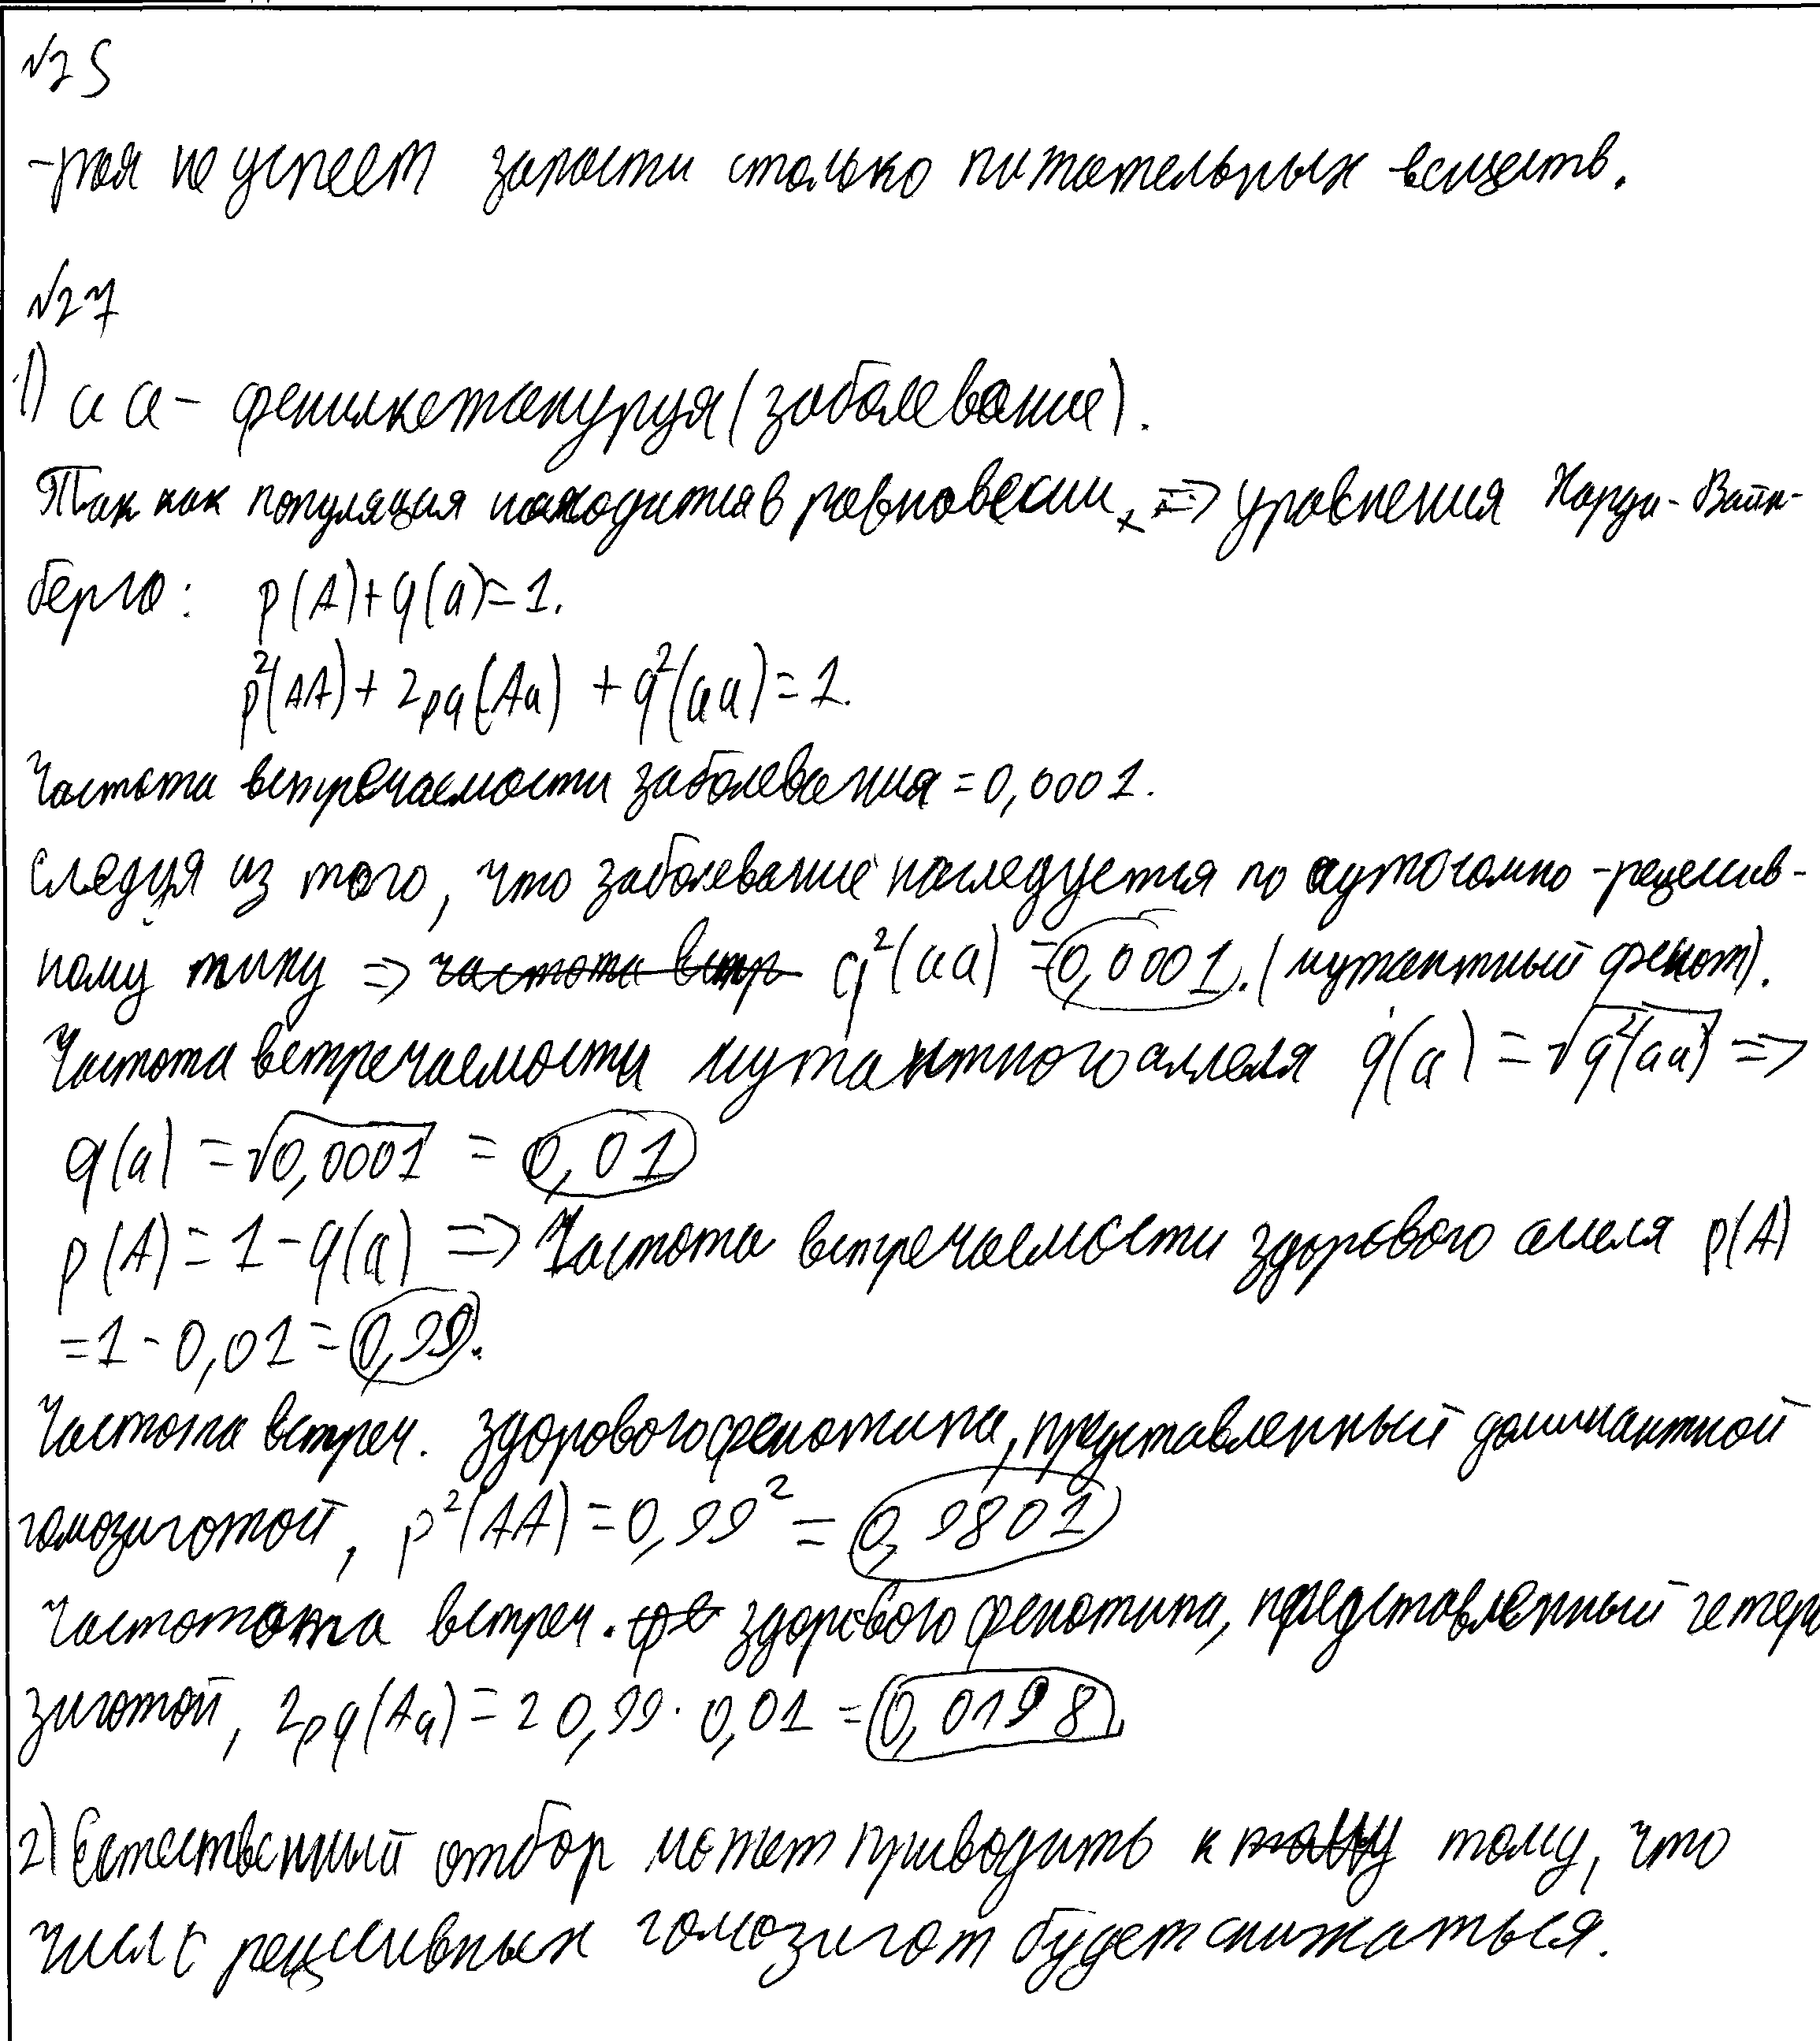 №25
-рая не успеет запасти столько питательных веществ.
№27
1) аа - фенилкетанурия (заболевание).
Так как популяция находится в равновесии, => уравнения Харди-Вайн-
берга: p(A)+q(a)=1.
p²(AA)+2pq(Aa)+q²(aa)=1.
Частота встречаемости заболевания = 0,0001.
Следуя из того, что заболевание наследуется по аутосомно-рецессив-
ному типу => частота встр q²(aa) = 0,0001. (мутантный фенот).
Частота встречаемости мутантного аллеля q(a) = √q²(aa) =>
q(a) = √0,0001 = 0,01
p(A) = 1-q(a) => Частота встречаемости здорового аллеля p(A)
=1-0,01=0,99.
Частота встреч. здорового фенотипа, представленный доминантной
гомозиготой, p²(AA)=0,99²=0,9801
Частотота встреч. фе здорового фенотипа, представленный гетеро
зиготой, 2pq(Aa)=2 0,99·0,01=0,0198.
2) Естественный отбор может приводить к тому, что
число рецессивных гомозигот будет снижаться.